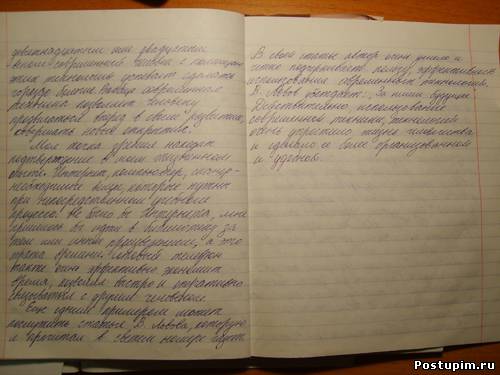 девятнадцатом или двадцатом
веком современный человек с помощью
этих технологий успевает сделать
гораздо больше. Вообще современная
техника позволяет человеку
продвигаться вперед в своем развитии,
совершать новые открытия.
Моя точка зрения находит
подтверждение в моем жизненном
опыте. Интернет, компьютер,
необходимые вещи, которые нужны
при непосредственном учебном
процессе. Не было бы Интернета, мне
пришлось бы идти в библиотеку за
тем или иным произведением, а это
трата времени. Сотовый телефон
также очень эффективно экономит
время, позволяя быстро и оперативно
связываться с другим человеком.
Еще одним примером может
послужить статья В. Львова, которую
я прочитал в свежем номере газеты
В своей статье автор очень умело и
четко подчеркивает пользу, эффективность
использования современных технологий.
В. Львов убеждает: "За ними будущее".
Действительно, использование
современной техники, технологий
очень упростило жизнь человечества
и сделало её более организованной
и удобной.
Postupim.ru